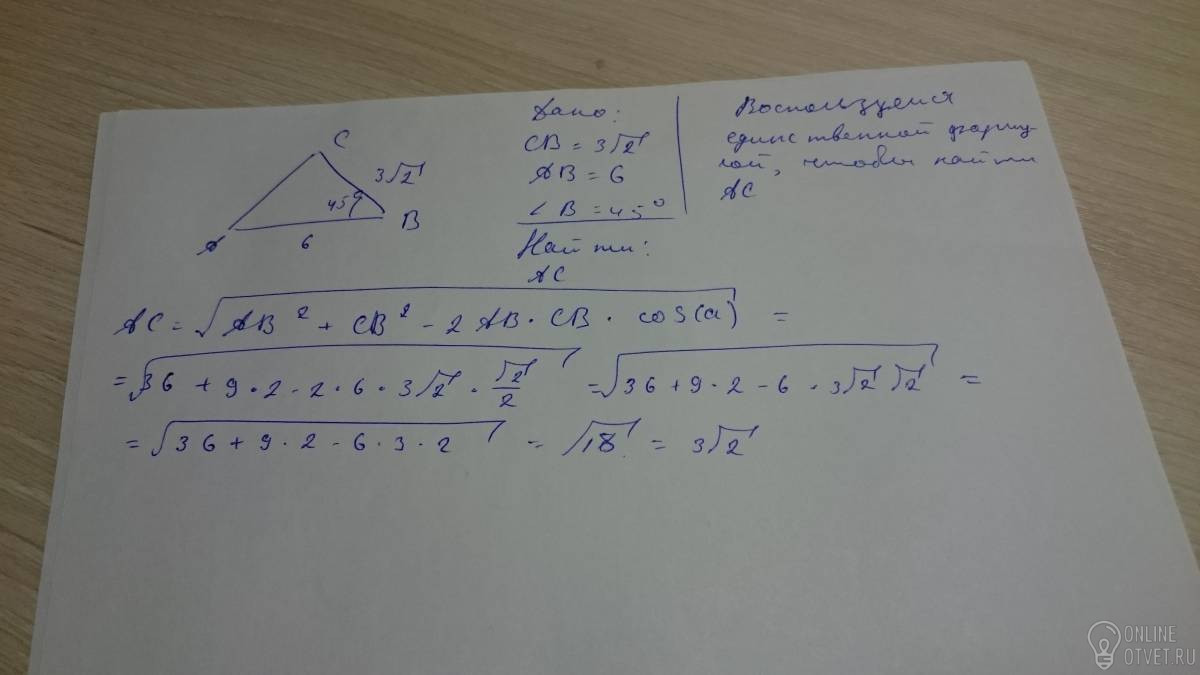 C
3√2
45°
B
A
6
Дано:
CB = 3√2
AB = 6
∠B = 45°
Найти:
AC
Воспользуемся
единственной форму-
лой, чтобы найти
AC
AC = √(AB² + CB² - 2 AB · CB · cos(a)) =
= √(36 + 9 · 2 - 2 · 6 · 3√2 · √2/2) = √(36 + 9 · 2 - 6 · 3√2 √2) =
= √(36 + 9 · 2 - 6 · 3 · 2) = √18 = 3√2
ONLINE
OTVET.RU